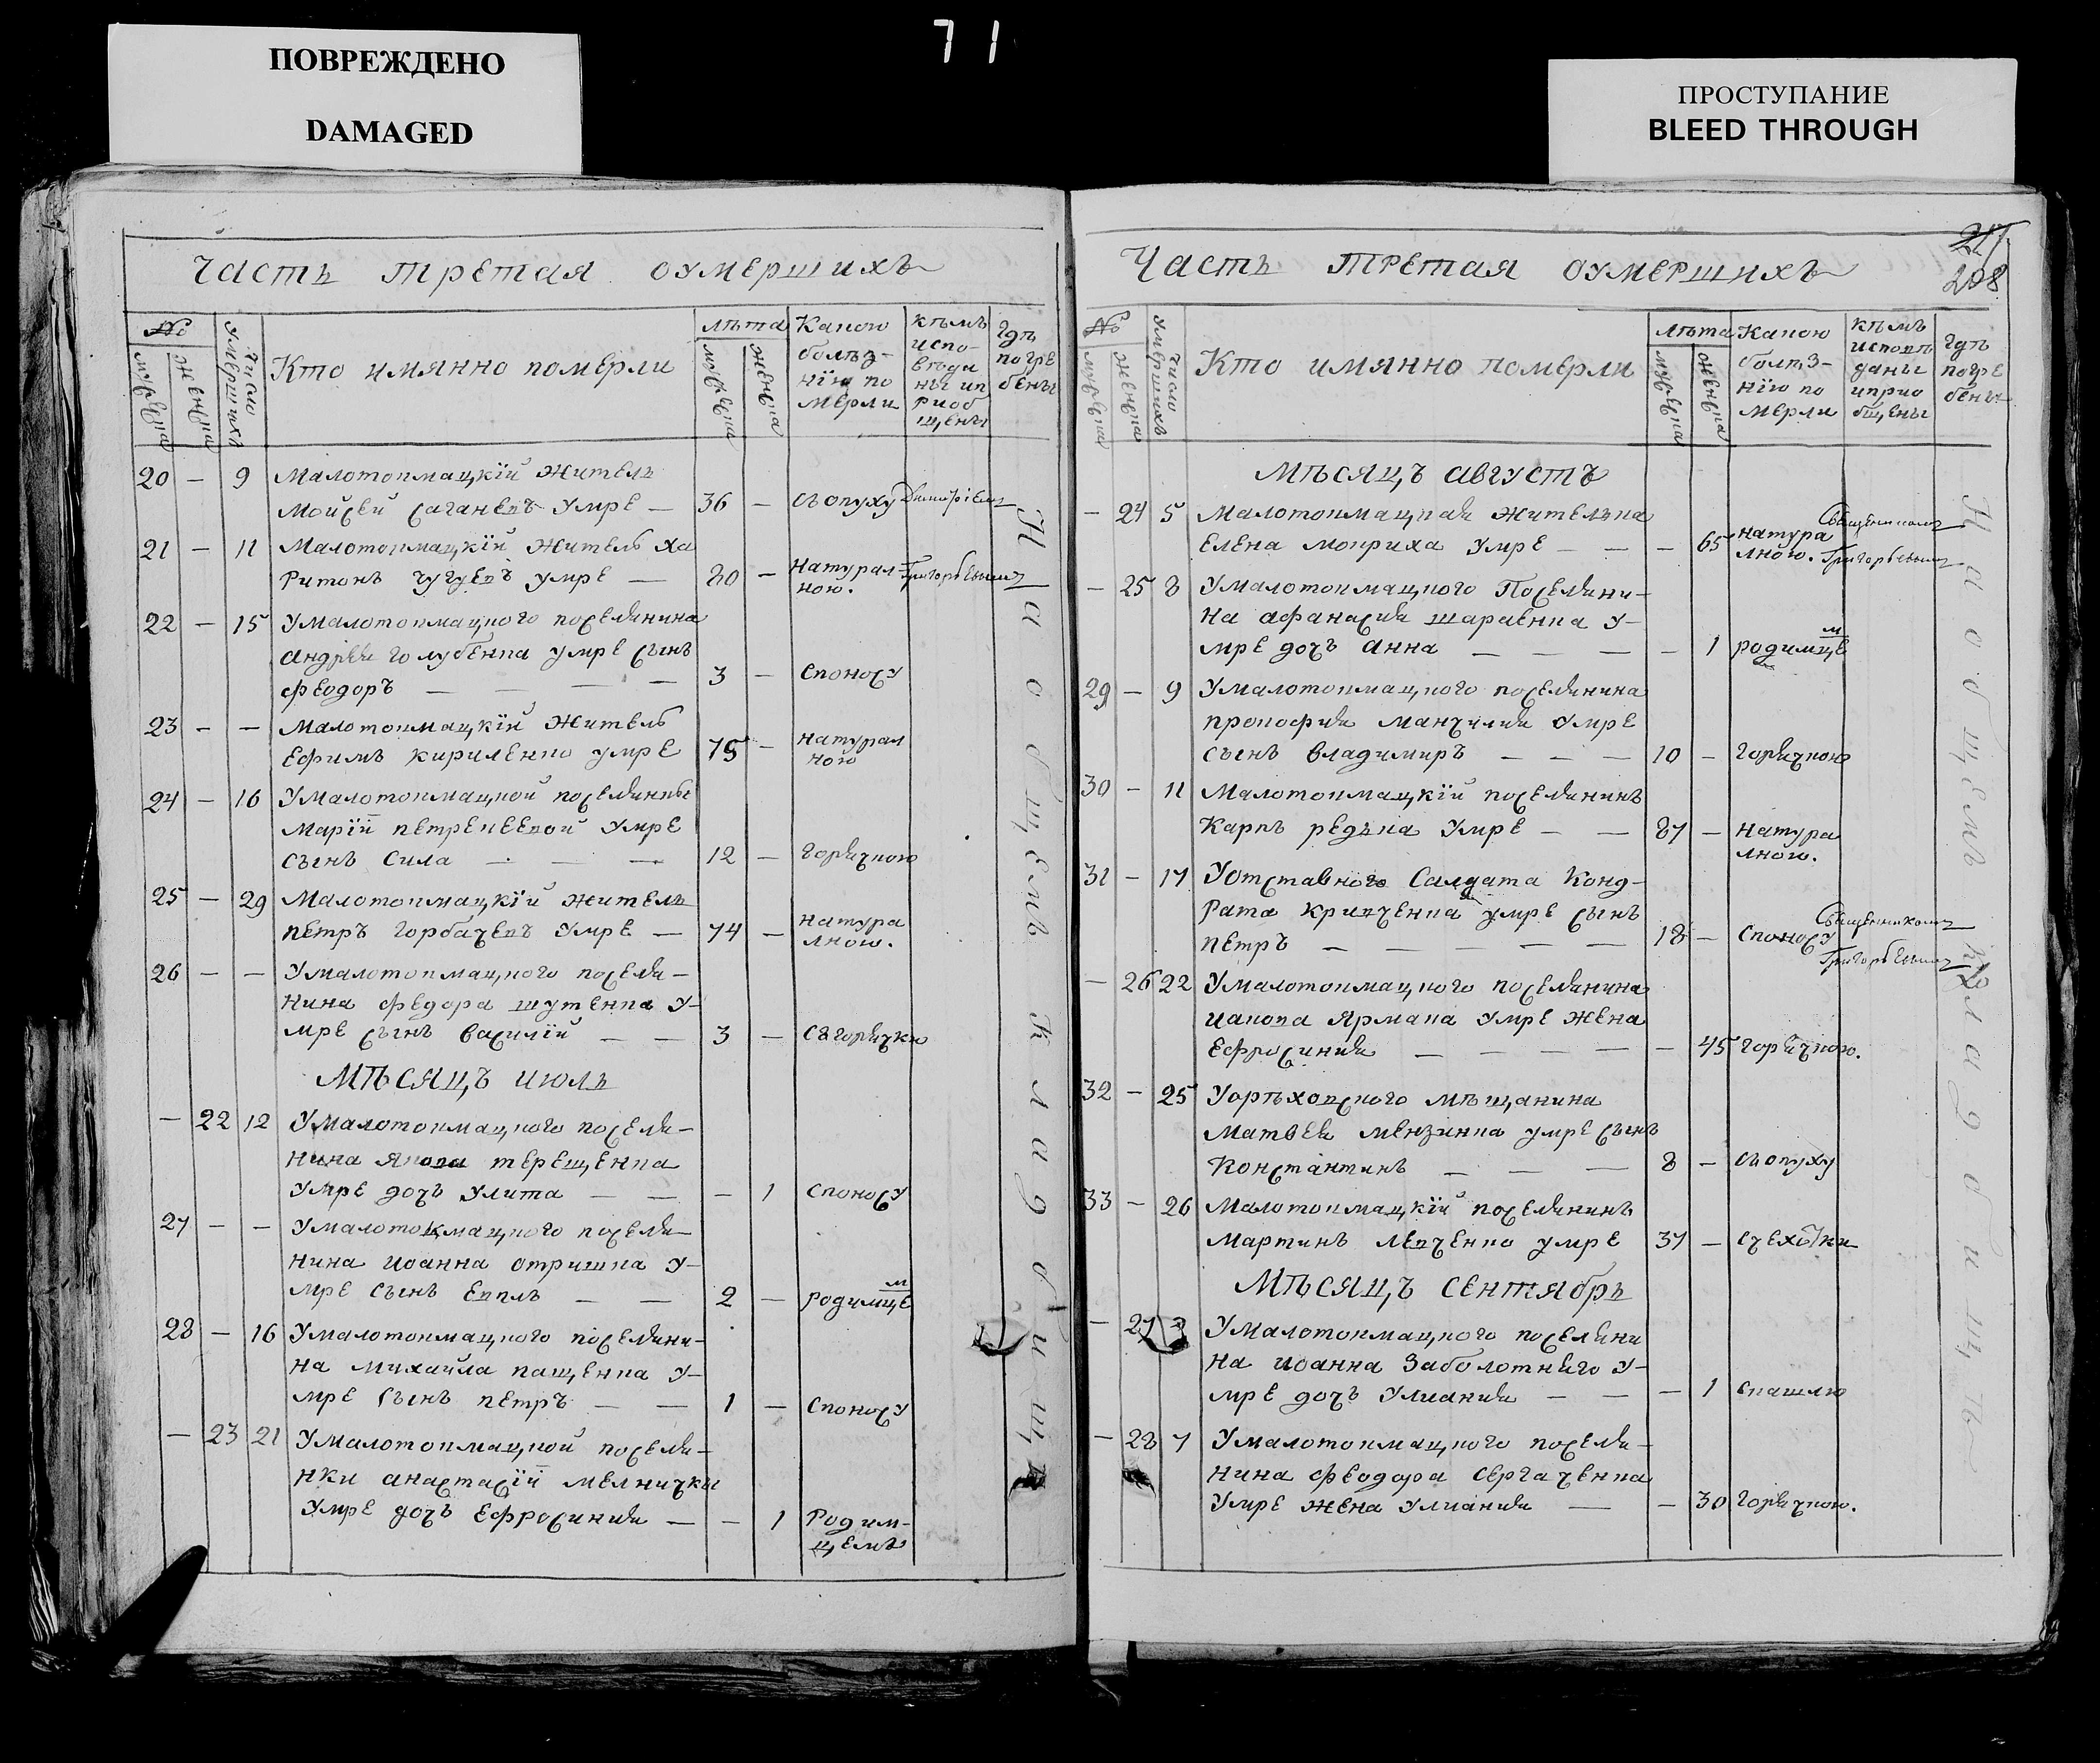 ПОВРЕЖДЕНО
DAMAGED
71
ПРОСТУПАНИЕ
BLEED THROUGH
Часть третая оумершихъ
№
мужеска
женска
число умершихъ
Кто имянно померли
лѣта
мужеска
женска
Какою
болѣз-
нїю по
мерли
кѣмъ
испо-
вѣди
ны ип
риоб
щены
гдѣ
погре
бены
20 — 9 Малотокмацкїй житель
Мойсей саганевъ умре — 36 — съ опуху Димитріемъ
21 — 11 Малотокмацкїй житель Ха
ритонъ чугуевъ умре — 80 — натурал Григорьевымъ
ною.
22 — 15 Умалотокмацкого поселянина
андрея голубенка умре сынъ
феодоръ — — — — 3 — споносу
23 — — Малотокмацкїй житель
Ефимъ кириленко умре 75 — натурал
ною
24 — 16 Умалотокмацкой поселянки
Марїй петренкевой умре
сынъ Сила — — — 12 — горячкою
25 — 29 Малотокмацкїй житель
петръ горбачевъ умре — 74 — натура
лною.
26 — — Умалотокмацкого поселя-
нина федора шутенка у-
мре сынъ василїй — — 3 — сягорячки
Мѣсяцъ июль
— 22 12 Умалотокмацкого поселя-
нина якова терещенка
умре дочь улита — — — 1 споносу
27 — — Умалотокмацкого поселя-
нина иоанна отришка у-
мре сынъ евплъ — — 2 — родимцем
28 — 16 Умалотокмацкого поселяни-
на михайла пащенка у-
мре сынъ петръ — — 1 — споносу
— 23 21 Умалотокмацкой поселя-
нки анастасїй мелнички
умре дочь ефросиния — — 1 Родим-
цемъ
На общемъ кладбищѣ
217
208
Часть третая оумершихъ
№
мужеска
женска
число умершихъ
Кто имянно померли
лѣта
мужеска
женска
Какою
болѣз-
нїю по
мерли
кѣмъ
исповѣ
даны
иприо
бщены
гдѣ
погре
бены
Мѣсяцъ августъ
— 24 5 Малотокмацкая жителька
Елена мокриха умре — — — 65 натура Священникомъ
лною. Григорьевымъ
— 25 8 Умалотокмацкого Поселяни-
на афанасия шараенка у-
мре дочь анна — — — — 1 родимцем
29 — 9 Умалотокмацкого поселянина
прокофия манчилия умре
сынъ владимиръ — — — 10 — горячкою
30 — 11 Малотокмацкїй поселянинъ
Карпъ редька умре — — 87 — натура
лною.
31 — 17 Уотставного Салдата Конд-
рата кривченка умре сынъ
петръ — — — — — 18 — споносу Священникомъ
Григорьевымъ
— 26 22 Умалотокмацкого поселянина
иакова Ярмака умре жена
ефросиния — — — — — 45 горячкою.
32 — 25 Уорѣховского мѣщанина
матвея мензинка умре сынъ
Константинъ — — — 8 — съ опуху
33 — 26 Малотокмацкїй поселянинъ
Мартинъ левченко умре 37 — счехотки
Мѣсяцъ сентябрь
— 27 3 Умалотокмацкого поселяни
на иоанна заболотнего у-
мре дочь улиания — — — 1 скашлю
— 28 7 Умалотокмацкого поселя-
нина феодора сергаченка
умре жена улиания — — 30 горячкою.
На общемъ кладбищѣ